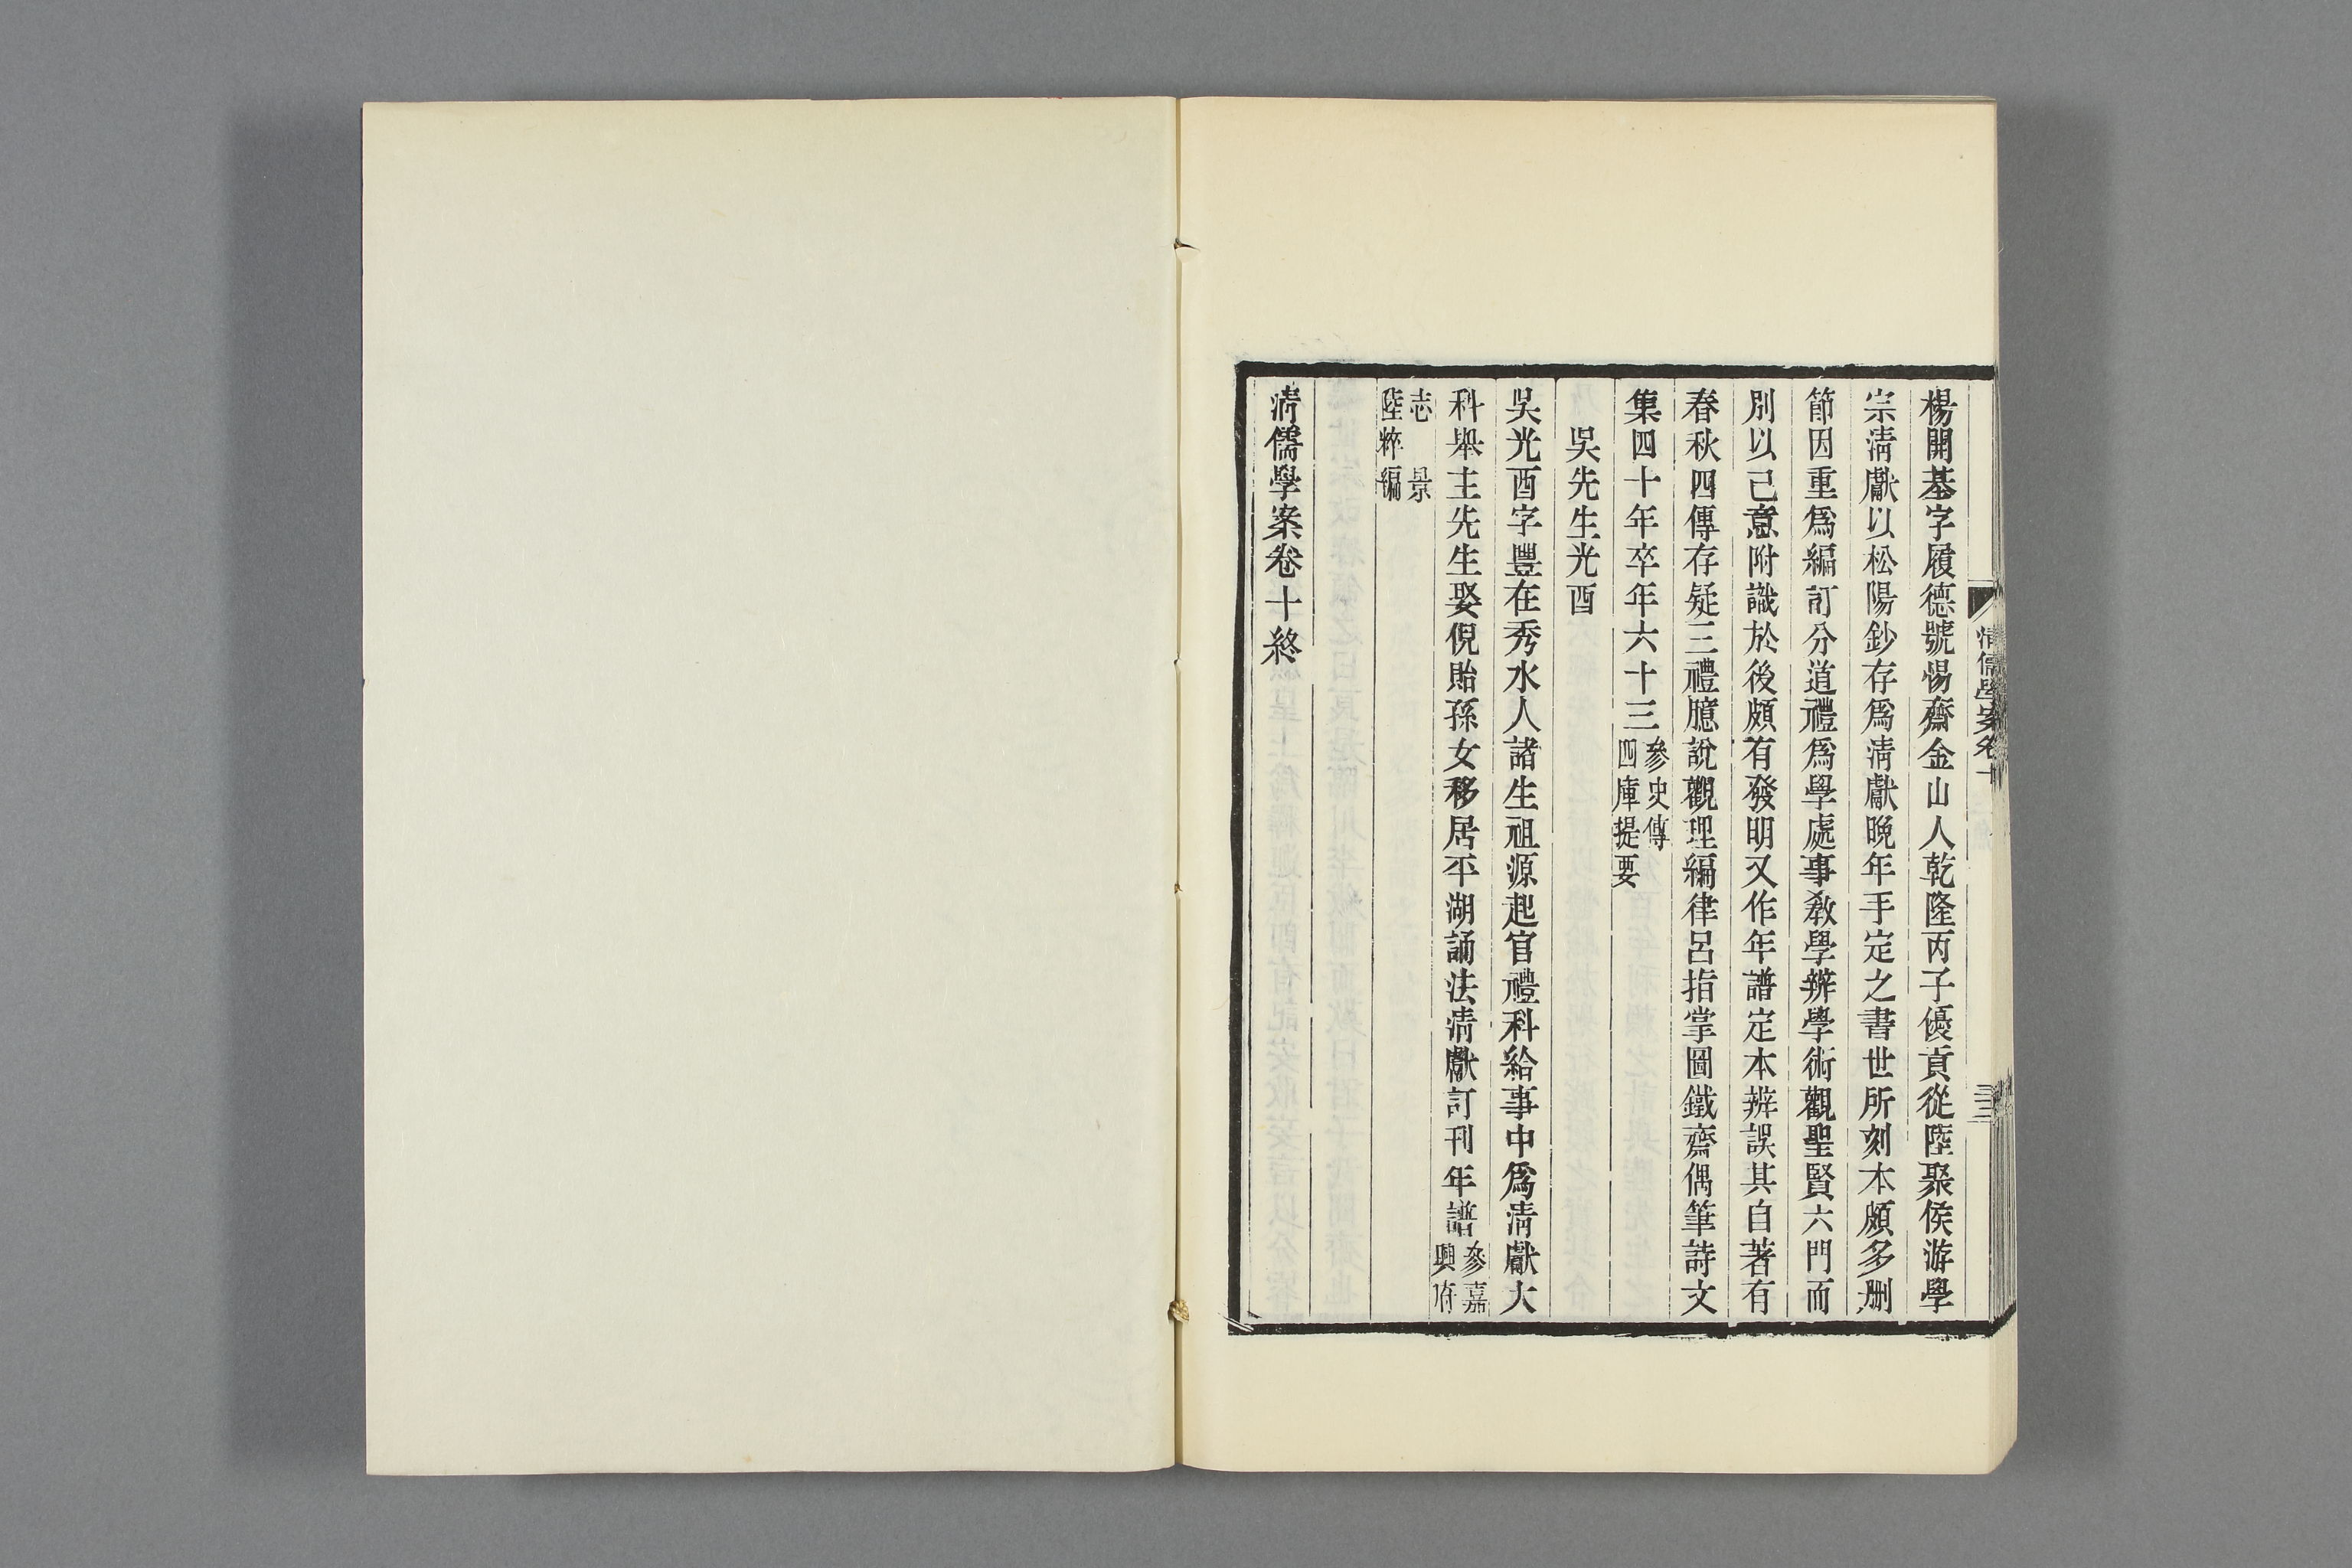 楊開基字履德號惕齋金山人乾隆丙子優貢從陸聚侯游學
宗淸獻以松陽鈔存爲淸獻晚年手定之書世所刻本頗多刪
節因重爲編訂分道禮爲學處事敎學辨學術觀聖賢六門而
別以己意附識於後頗有發明又作年譜定本辨誤其自著有
春秋四傳存疑三禮臆說觀理編律呂指掌圖鐵齋偶筆詩文
集四十年卒年六十三參史傳
四庫提要
吳先生光酉
吳光酉字豐在秀水人諸生祖源起官禮科給事中爲淸獻大
科舉主先生娶倪貽孫女移居平湖誦法淸獻訂刊年譜參嘉
興府
志 景
陸粹編
淸儒學案卷十終
淸儒學案卷十
三三